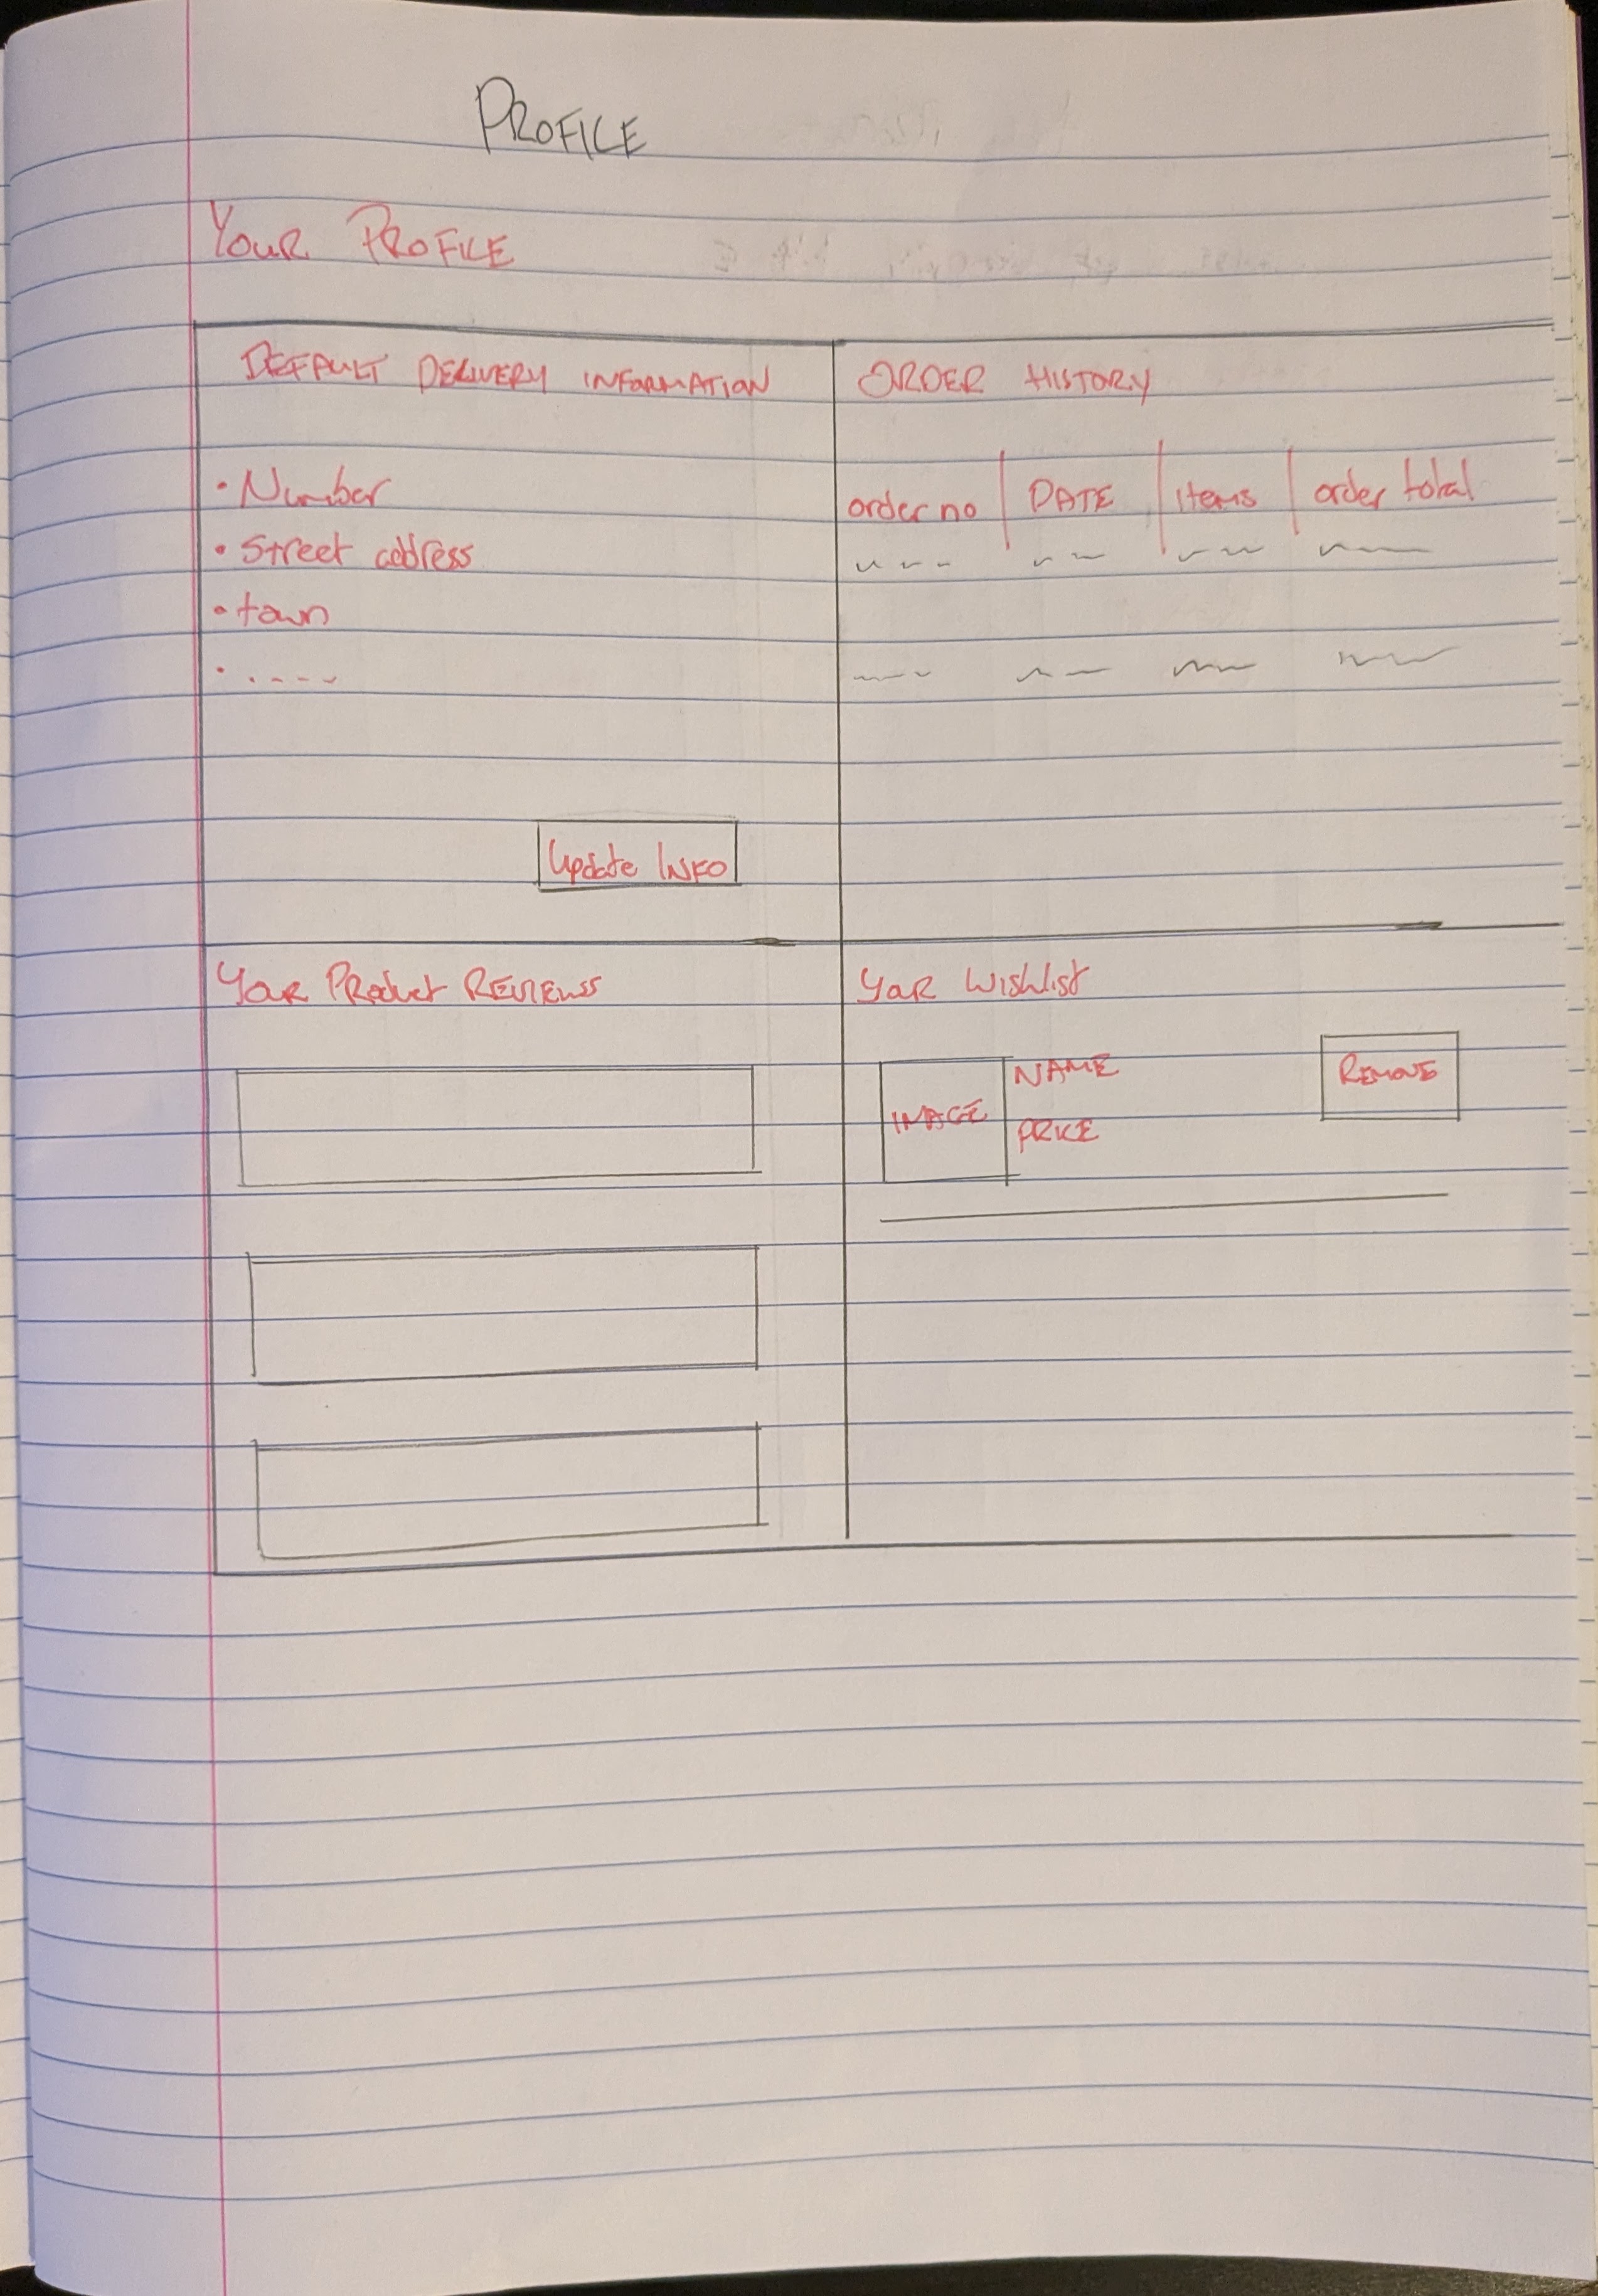 PROFILE
YOUR PROFILE
DEFAULT DELIVERY INFORMATION
• Number
• Street address
• town
• ----
Update INFO
ORDER HISTORY
order no | DATE | items | order total
YOUR PRODUCT REVIEWS
YOUR WISHLIST
IMAGE
NAME
PRICE
REMOVE